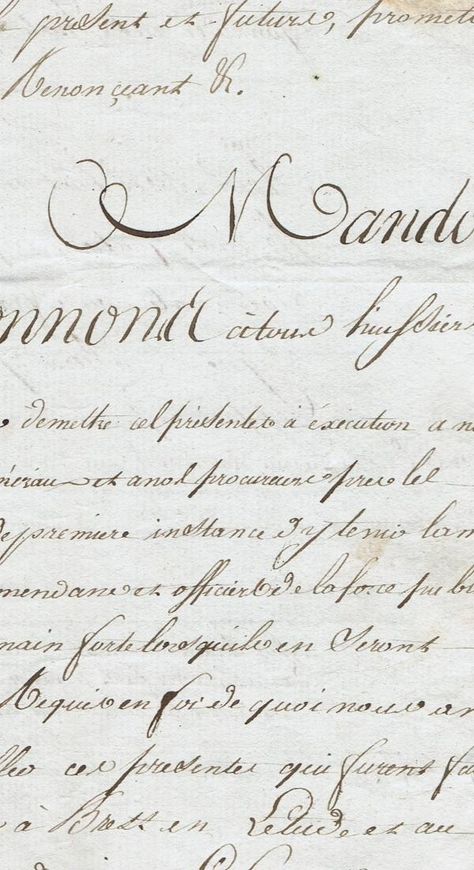 present et future, promet
Renonçant &.
Mand
onnond à tous huissiers
demettre cel présentes à éxécution a n
néraux et anos procureurs pres les
de premiere instance d'y tenir la m
mendans et officiers de la force pub
main forte lorsquils en Seront
Requis en foi de quoi nous a
llé ces presentes qui furent fa
à Brest en L'etude et au